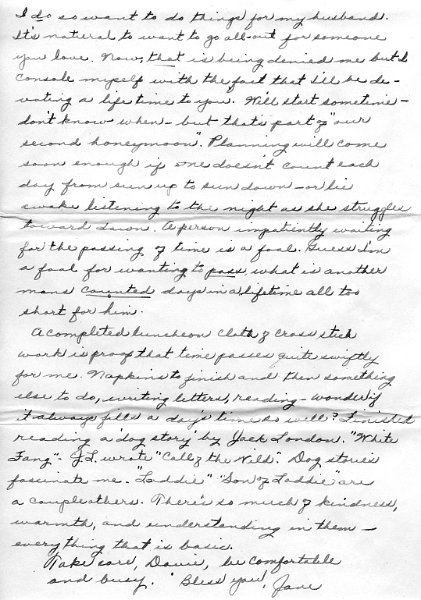 I do so want to do things for my husband.
It's natural to want to go all-out for someone
you love. Now, that is being denied me but I
console myself with the fact that I'll be de-
voting a life time to you. We'll start sometime -
don't know when - but that's part of "our
second honeymoon". Planning will come
soon enough if one doesn't count each
day from sun up to sun down - or lie
awake listening to the night as she struggles
toward dawn. A person impatiently waiting
for the passing of time is a fool. Guess I'm
a fool for wanting to pass, what is another
mans counted days in a lifetime all too
short for him.
A completed luncheon cloth of cross stick
work is proof that time passes quite swiftly
for me. Napkins to finish and then something
else to do, writing letters, reading - wonder if
it always fills a day's time so well? Finished
reading a dog story by Jack London. "White
Fang". J.L. wrote "Call of the Wild". Dog stories
fascinate me. "Laddie" "Son of Laddie" are
a couple others. There's so much of kindness,
warmth, and understanding in them -
everything that is basic.
Take care, Davie, be comfortable
and busy. 'Bless you', Jane